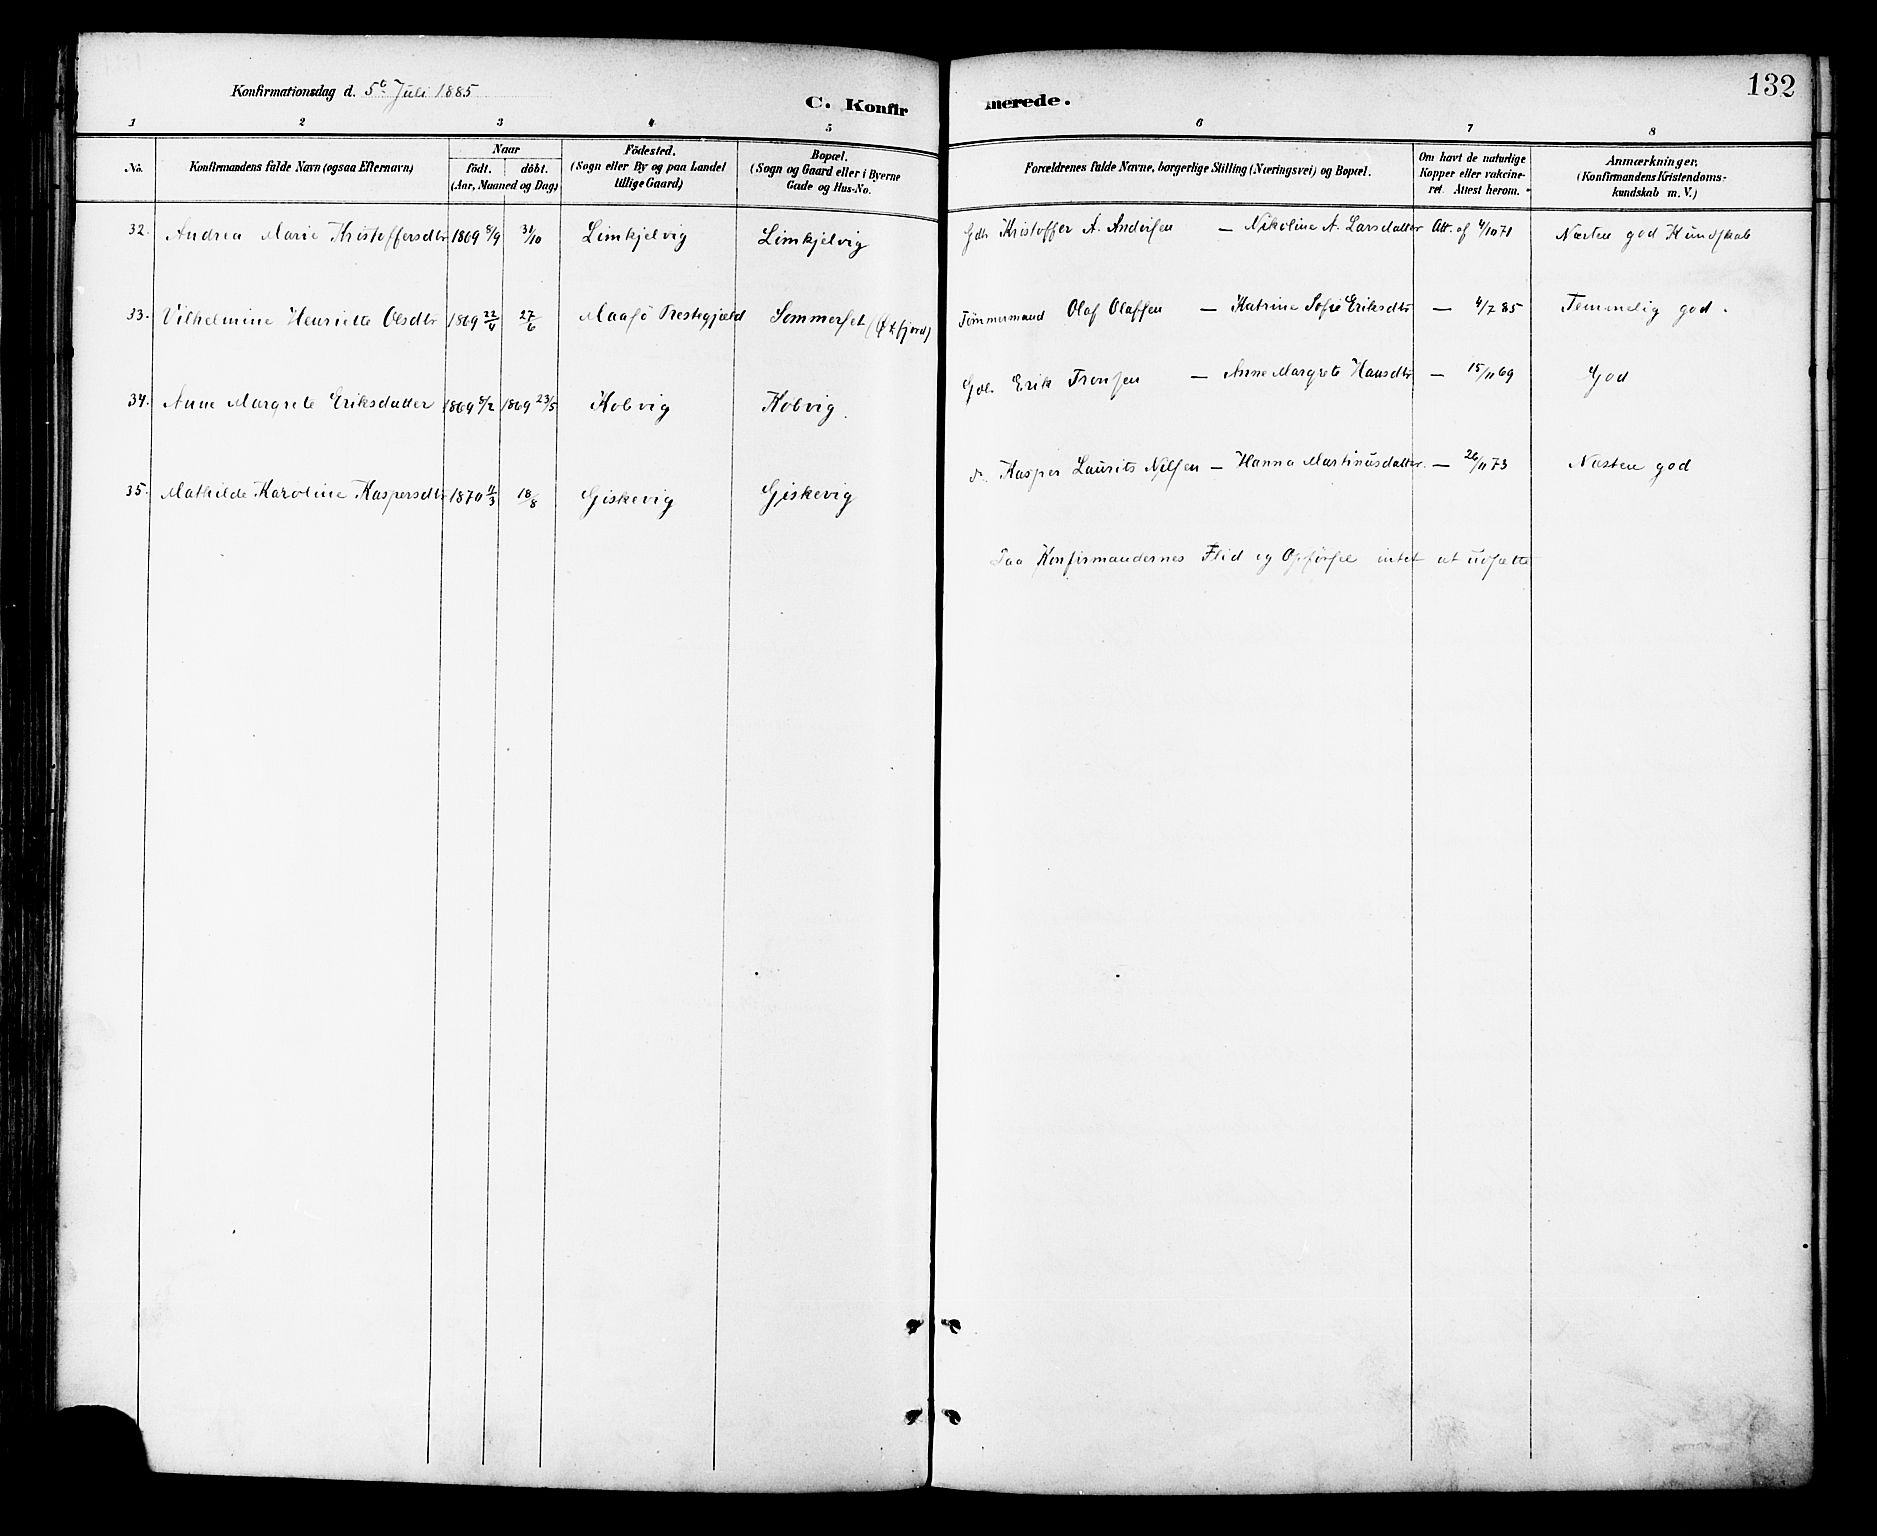 132
Konfirmationsdag d. 5te Juli 1885
C. Konfirmerede.
1 2 3 4 5 6 7 8
No. Konfirmandens fulde Navn (ogsaa Efternavn) Naar födt. döbt. (Aar, Maaned og Dag) Födested. (Sogn eller By og paa Landet tillige Gaard) Bopæl. (Sogn og Gaard eller i Byerne Gade og Hus-No. Forældrenes fulde Navne, borgerlige Stilling (Næringsvei) og Bopæl. Om havt de naturlige Kopper eller vakcineret. Attest herom. Anmærkninger. (Konfirmandens Kristendomskundskab m. V.)
32. Andrea Marie Kristoffersdtr 1869 8/9 31/10 Limkjelvig Limkjelvig Gdb. Kristoffer A. Andersen — Nikoline A. Larsdatter Att. af 4/10 71 Næsten god Kundskab
33. Vilhelmine Henriette Olsdtr 1869 22/4 27/6 Maasø Prestegjæld Sommerset (Øxfjord) Tømmermand Olaf Olassen — Katrine Sofie Eriksdtr — 4/7 85 Temmelig god.
34. Anne Margrete Eriksdatter 1869 8/2 1869 23/5 Kobvig Kobvig. Gdb. Erik Tronsen — Anne Margrete Hansdtr — 15/11 69 God
35. Mathilde Karoline Kaspersdtr 1870 11/3 18/8 Giskevig Giskevig d. Kasper Laurits Nilsen — Hanna Martinusdatter. — 26/11 73 Næsten god
Paa Konfirmandernes Flid og Opførsel intet at udsætte